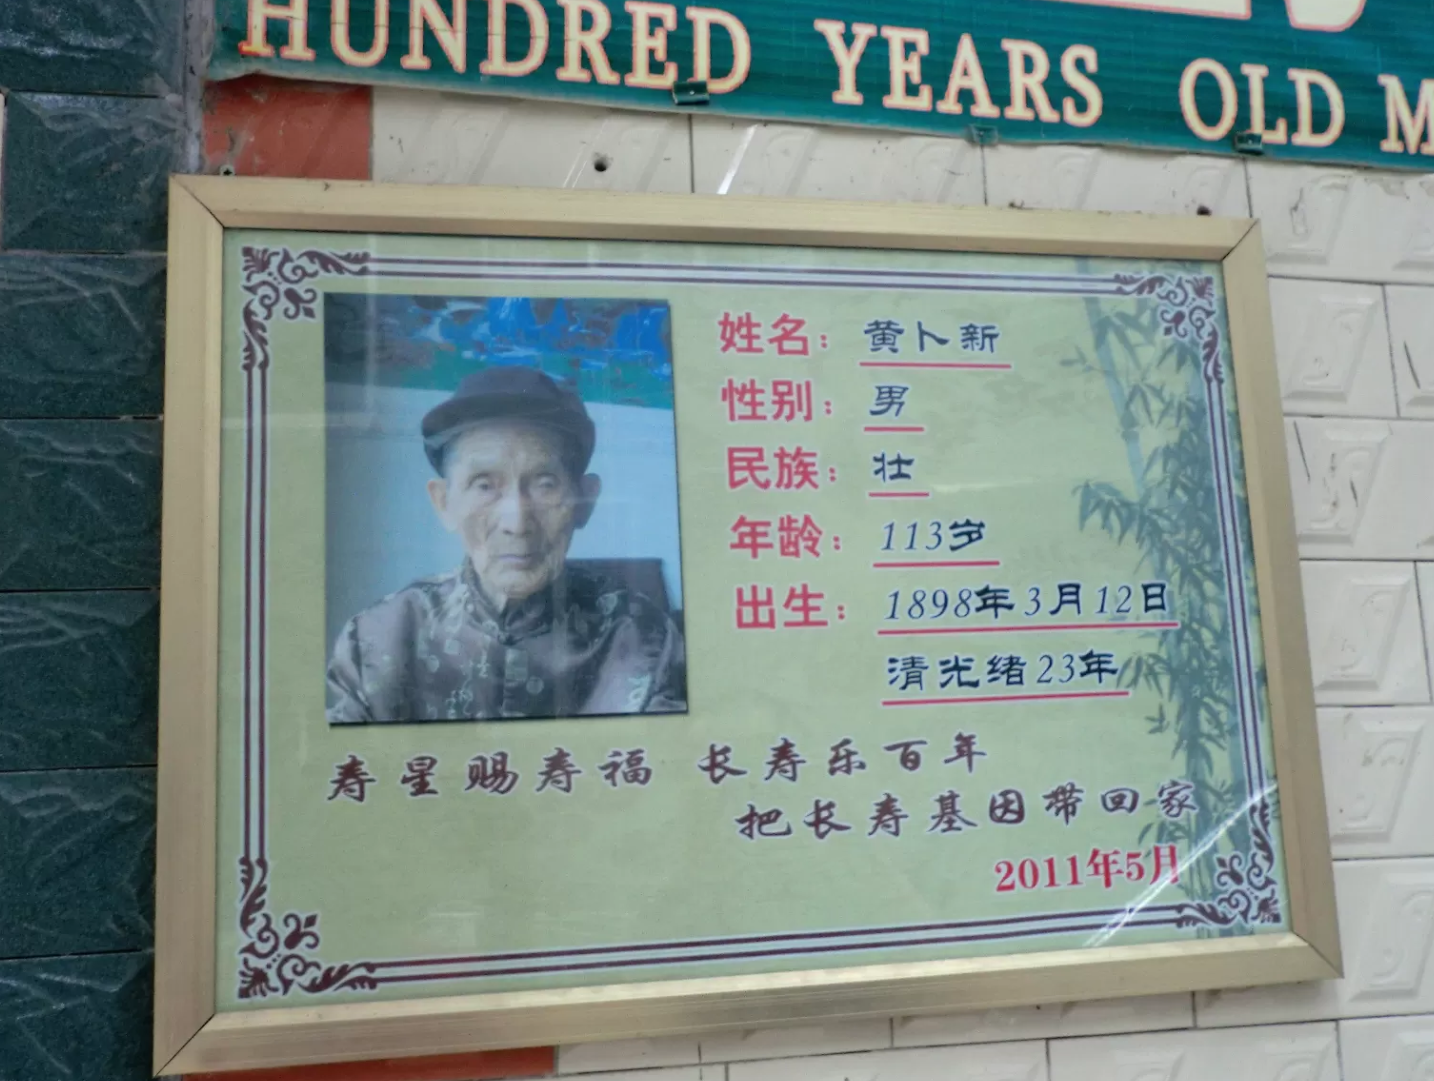 HUNDRED YEARS OLD M
姓名：黄卜新
性别：男
民族：壮
年龄：113岁
出生：1898年3月12日
清光绪23年
寿星赐寿福 长寿乐百年
把长寿基因带回家
2011年5月